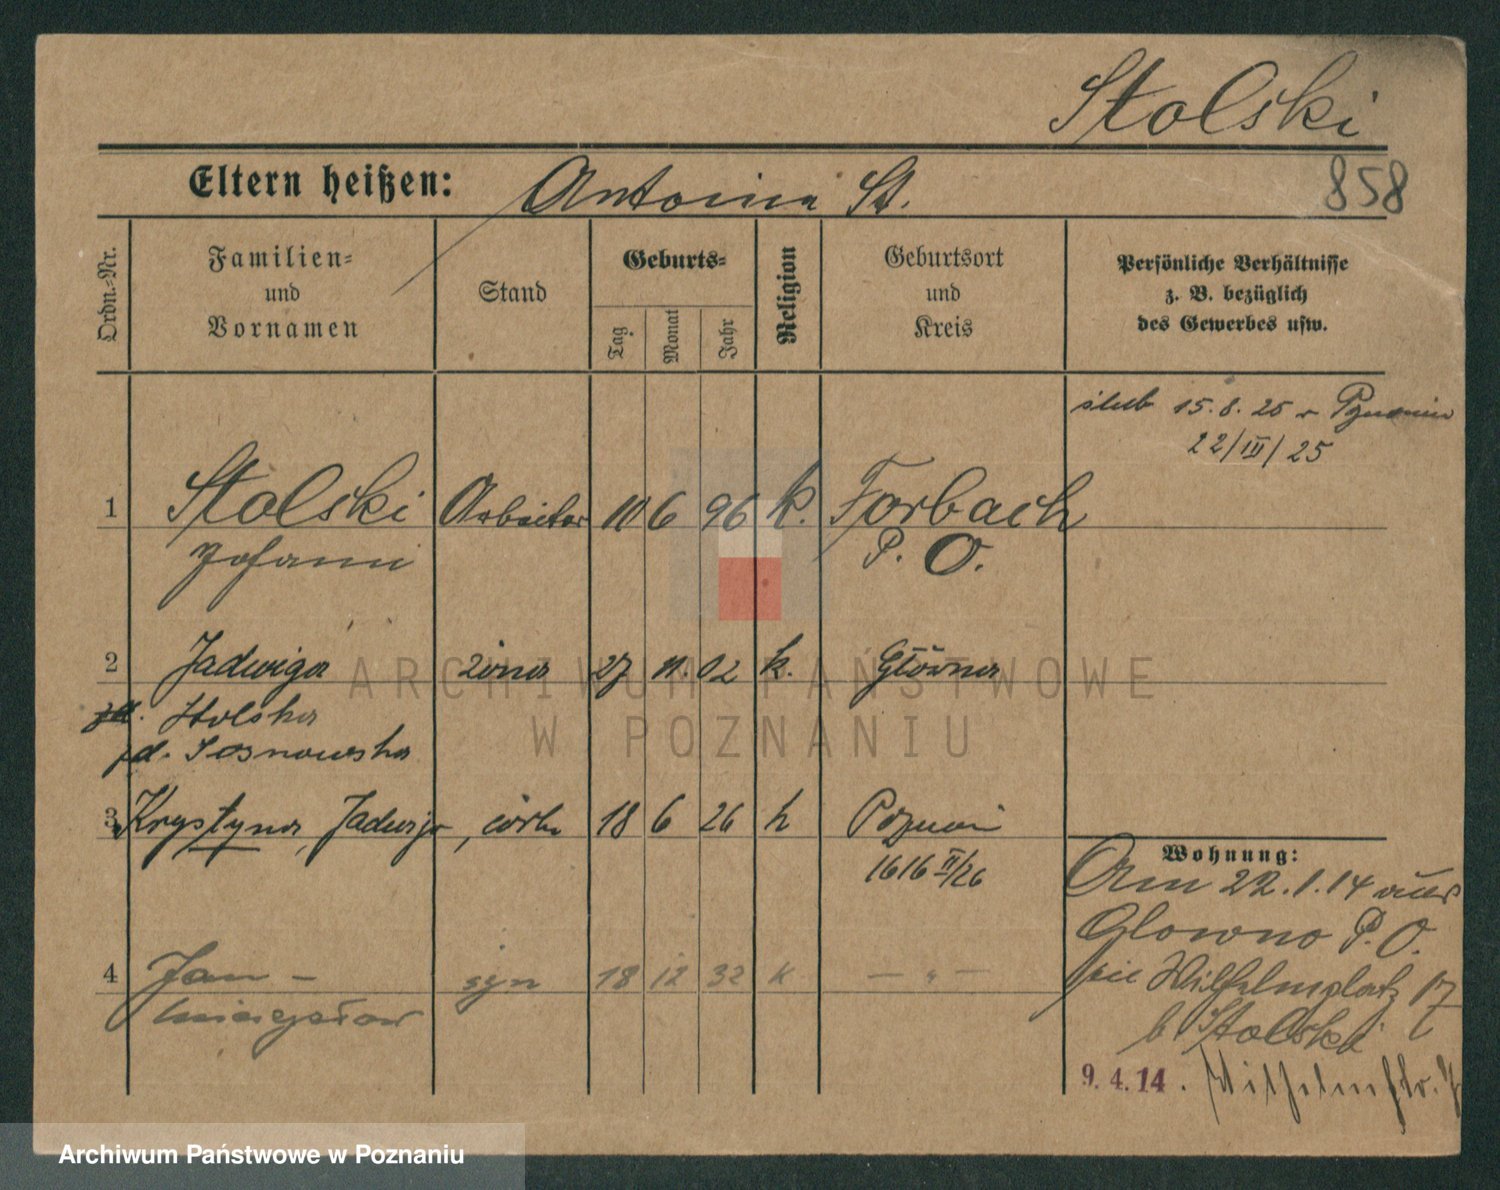 Stolski
858
Eltern heißen: Antonina St.
Ordn.-Nr.
Familien- und Vornamen
Stand
Geburts-
Tag
Monat
Jahr
Religion
Geburtsort und Kreis
Persönliche Verhältnisse z. B. bezüglich des Gewerbes usw.
ślub 15.8.25 w Poznaniu
22/III/25
1 Stolski Arbeiter 10 6 96 k. Forbach
Johann P. O.
2 Jadwiga żona 27 11. 02 k. Główna
Stolska
zd. Sosnowska
3 Krystyna, Jadwiga, córka 18 6 26 k Poznań
1616 II/26
4 Jan - syn 18 12 32 k — " —
Mieczysław
Wohnung:
Am 22.1.14 aus
Glowno P. O.
Wilhelmplatz 17
b Stolski
9. 4. 14. Wilhelmstr.
ARCHIWUM PAŃSTWOWE
W POZNANIU
Archiwum Państwowe w Poznaniu